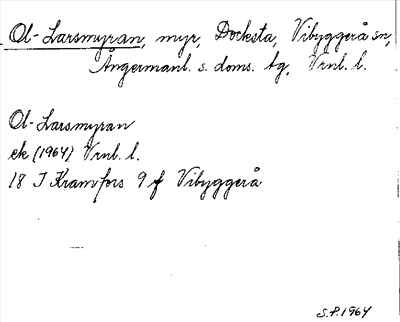 Ol-Larsmyran, myr, Docksta, Vibyggerå sn,
Ångermanl. s. doms. tg, Vrnl. l.
Ol-Larsmyran
ek (1964) Vrnl. l.
18 I Kramfors 9 f Vibyggerå
S.P. 1964